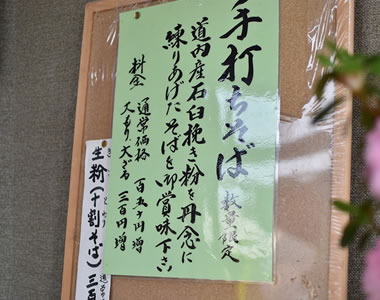 手打ちそば 数量限定
道内産石臼挽き粉を丹念に
練りあげたそばを御賞味下さい
料金 通常価格 百五十円増
大もり、大ざる 三百円増
生粉(十割そば) 三百